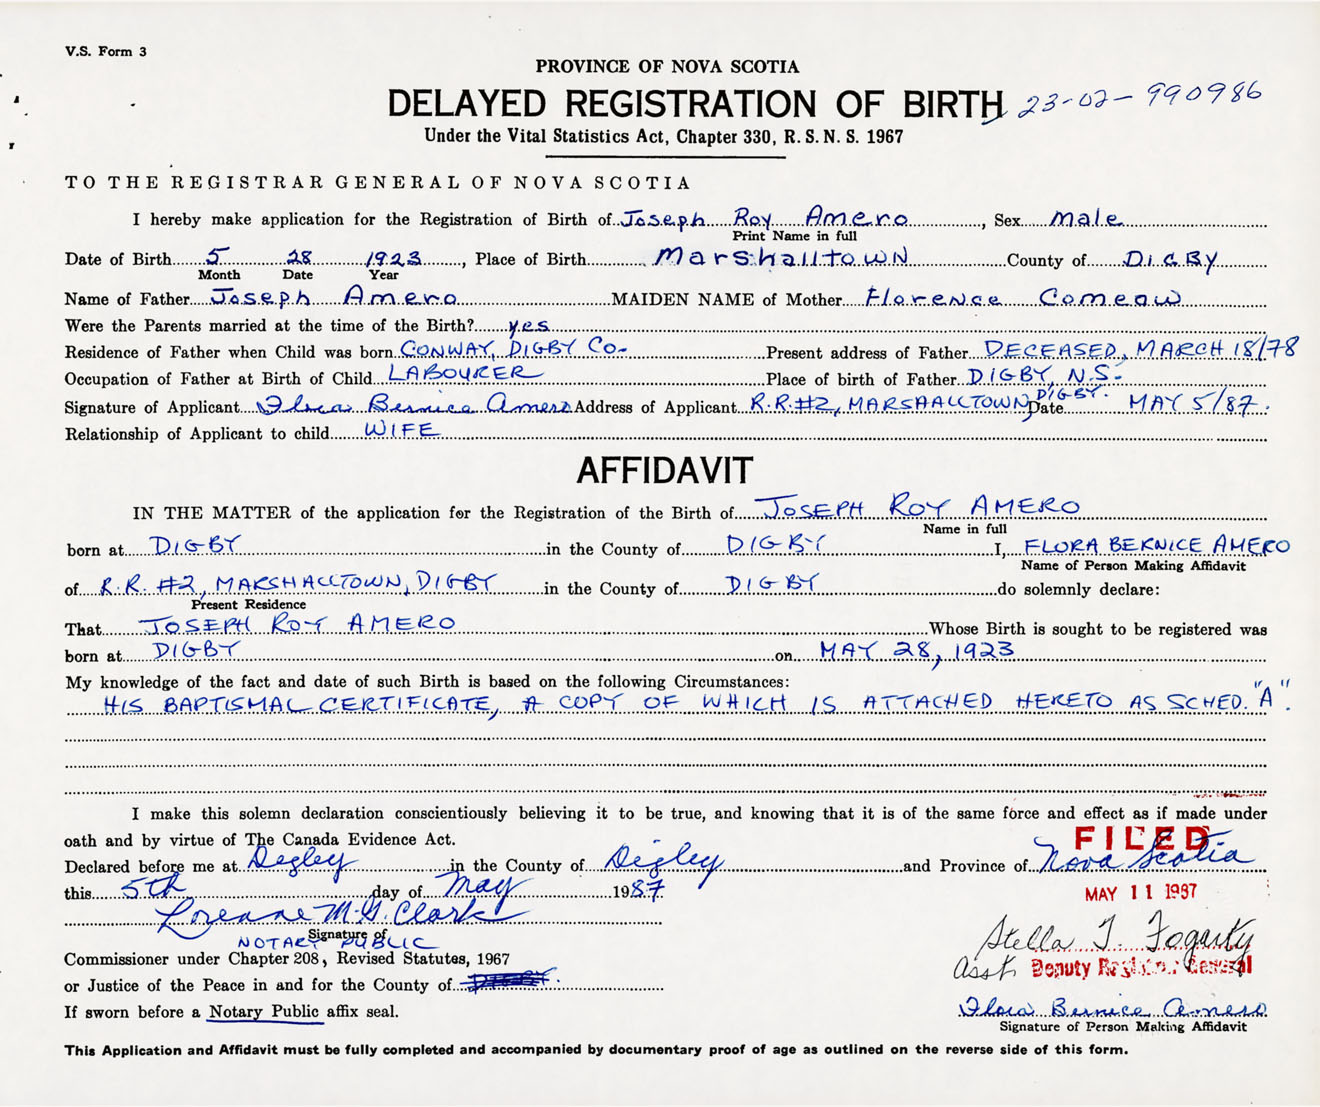 V.S. Form 3
PROVINCE OF NOVA SCOTIA
DELAYED REGISTRATION OF BIRTH 23-02-990986
Under the Vital Statistics Act, Chapter 330, R.S.N.S. 1967
TO THE REGISTRAR GENERAL OF NOVA SCOTIA
I hereby make application for the Registration of Birth of Joseph Roy Amero, Sex male
Print Name in full
Date of Birth 5 28 1923, Place of Birth Marshalltown County of DIGBY
Month Date Year
Name of Father Joseph Amero MAIDEN NAME of Mother Florence Comeau
Were the Parents married at the time of the Birth? yes
Residence of Father when Child was born CONWAY, DIGBY CO. Present address of Father DECEASED, MARCH 18/78
Occupation of Father at Birth of Child LABOURER Place of birth of Father DIGBY, N.S.
Signature of Applicant Flora Bernice Amero Address of Applicant R.R.#2, MARSHALLTOWN, DIGBY. Date MAY 5/87.
Relationship of Applicant to child WIFE
AFFIDAVIT
IN THE MATTER of the application for the Registration of the Birth of JOSEPH ROY AMERO
Name in full
born at DIGBY in the County of DIGBY I, FLORA BERNICE AMERO
Name of Person Making Affidavit
of R.R. #2, MARSHALLTOWN, DIGBY in the County of DIGBY do solemnly declare:
Present Residence
That JOSEPH ROY AMERO Whose Birth is sought to be registered was
born at DIGBY on MAY 28, 1923
My knowledge of the fact and date of such Birth is based on the following Circumstances:
HIS BAPTISMAL CERTIFICATE, A COPY OF WHICH IS ATTACHED HERETO AS SCHED. "A".
I make this solemn declaration conscientiously believing it to be true, and knowing that it is of the same force and effect as if made under
oath and by virtue of The Canada Evidence Act.
FILED
Declared before me at Digby in the County of Digby and Province of Nova Scotia
this 5th day of May 1987
MAY 11 1987
Loreane M.G. Clark
Signature of
NOTARY PUBLIC
Stella T. Fogarty
Commissioner under Chapter 208, Revised Statutes, 1967
Asst. Deputy Registrar General
or Justice of the Peace in and for the County of DIGBY.
If sworn before a Notary Public affix seal.
Flora Bernice Amero
Signature of Person Making Affidavit
This Application and Affidavit must be fully completed and accompanied by documentary proof of age as outlined on the reverse side of this form.